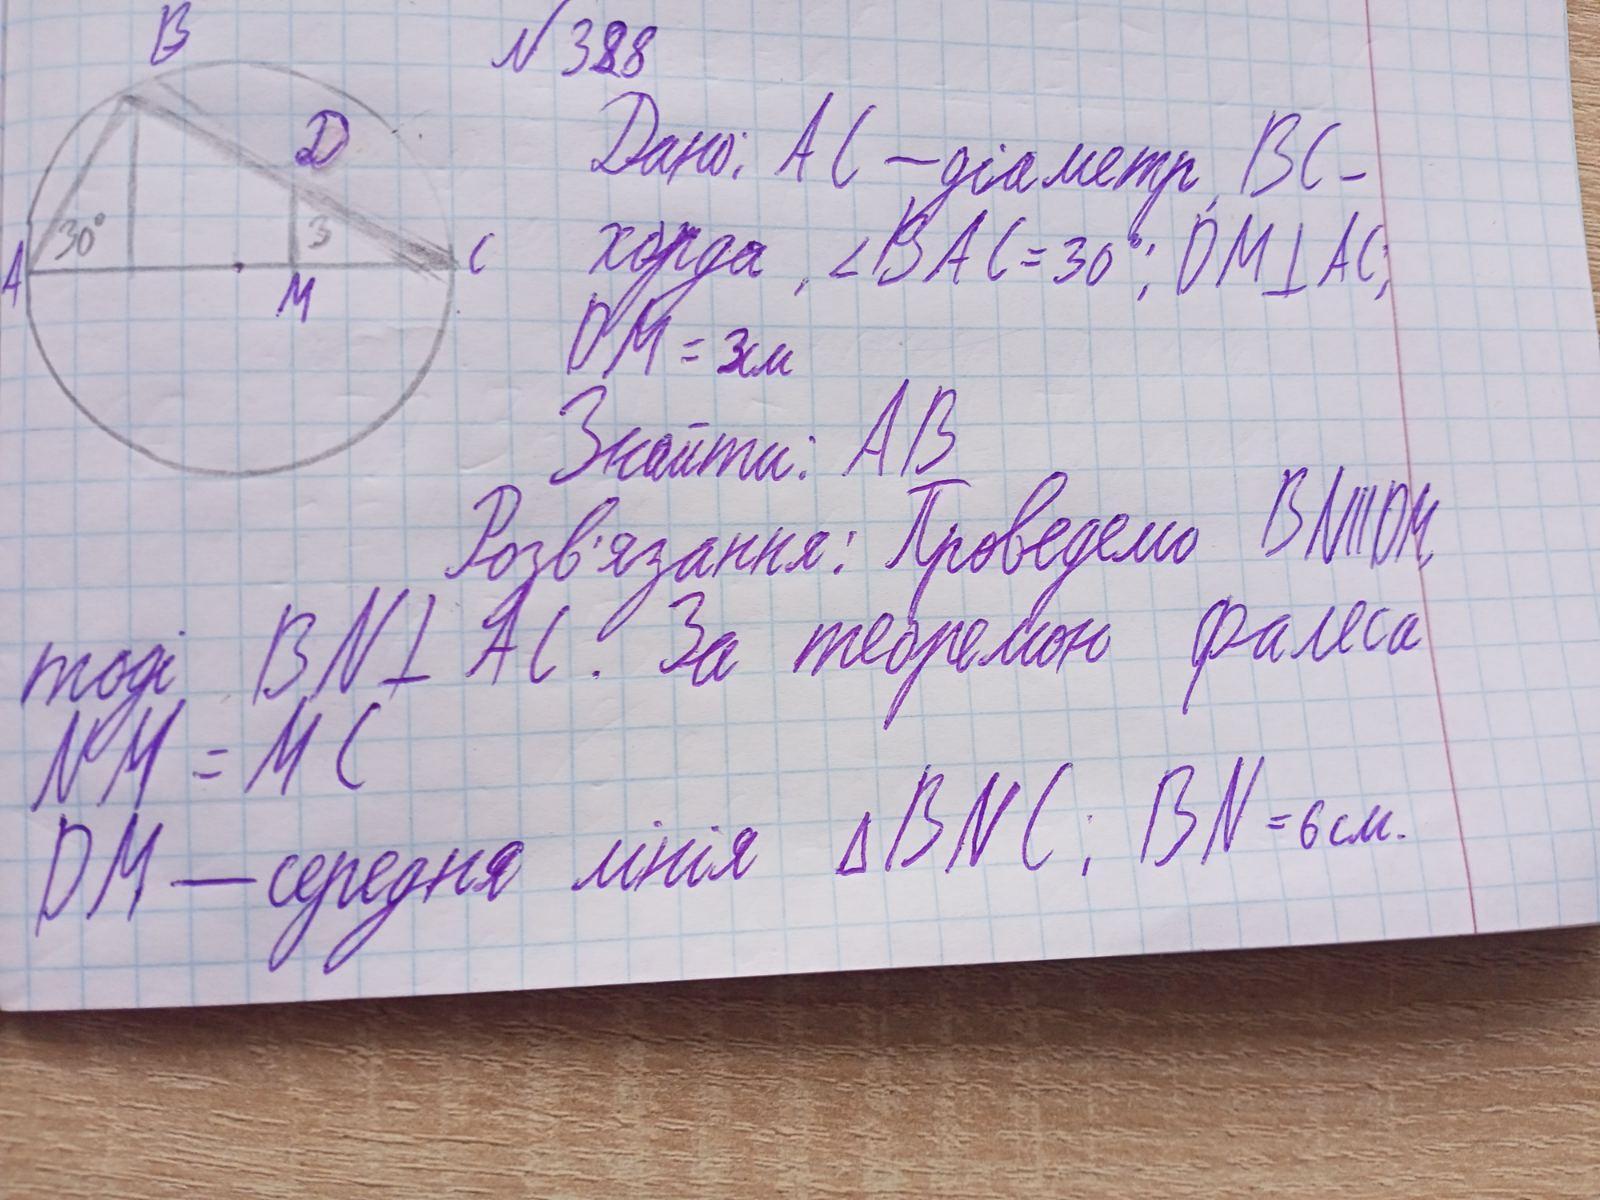 B
N 388
D
30°
3
A
C
M
Дано: AC – діаметр, BC –
хорда, ∠BAC = 30°; DM⊥AC;
DM = 3см
Знайти: AB
Розв'язання: Проведемо BN||DM,
тоді BN⊥AC. За теоремою Фалеса
NM = MC
DM – середня лінія ΔBNC; BN = 6 см.